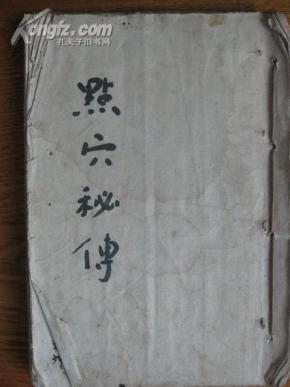 Kongfz.com
孔夫子旧书网
點穴秘傳